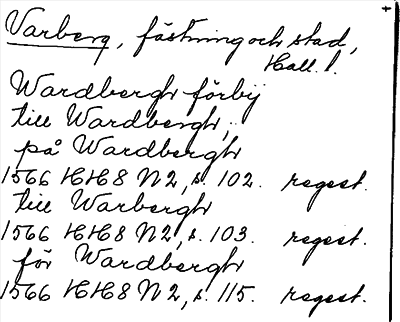 Varberg, fästning och stad,
Hall. l.
Wardbergh förbij
till Wardbergh,
på Wardbergh
1566 HH8 N2, s. 102. regest.
till Warbergh
1566 HH8 N2, s. 103. regest.
för Wardbergh
1566 HH8 N2, s. 115. regest.